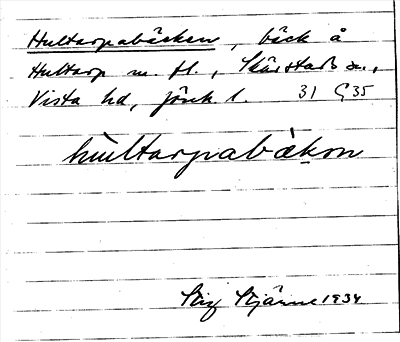 Hultarpabäcken, bäck å
Hultarp m. fl., Skärstads sn.,
Vista hd, Jönk. l. 31 Ç 35
hùltarpabä̀kən
Stig Stjärne 1934